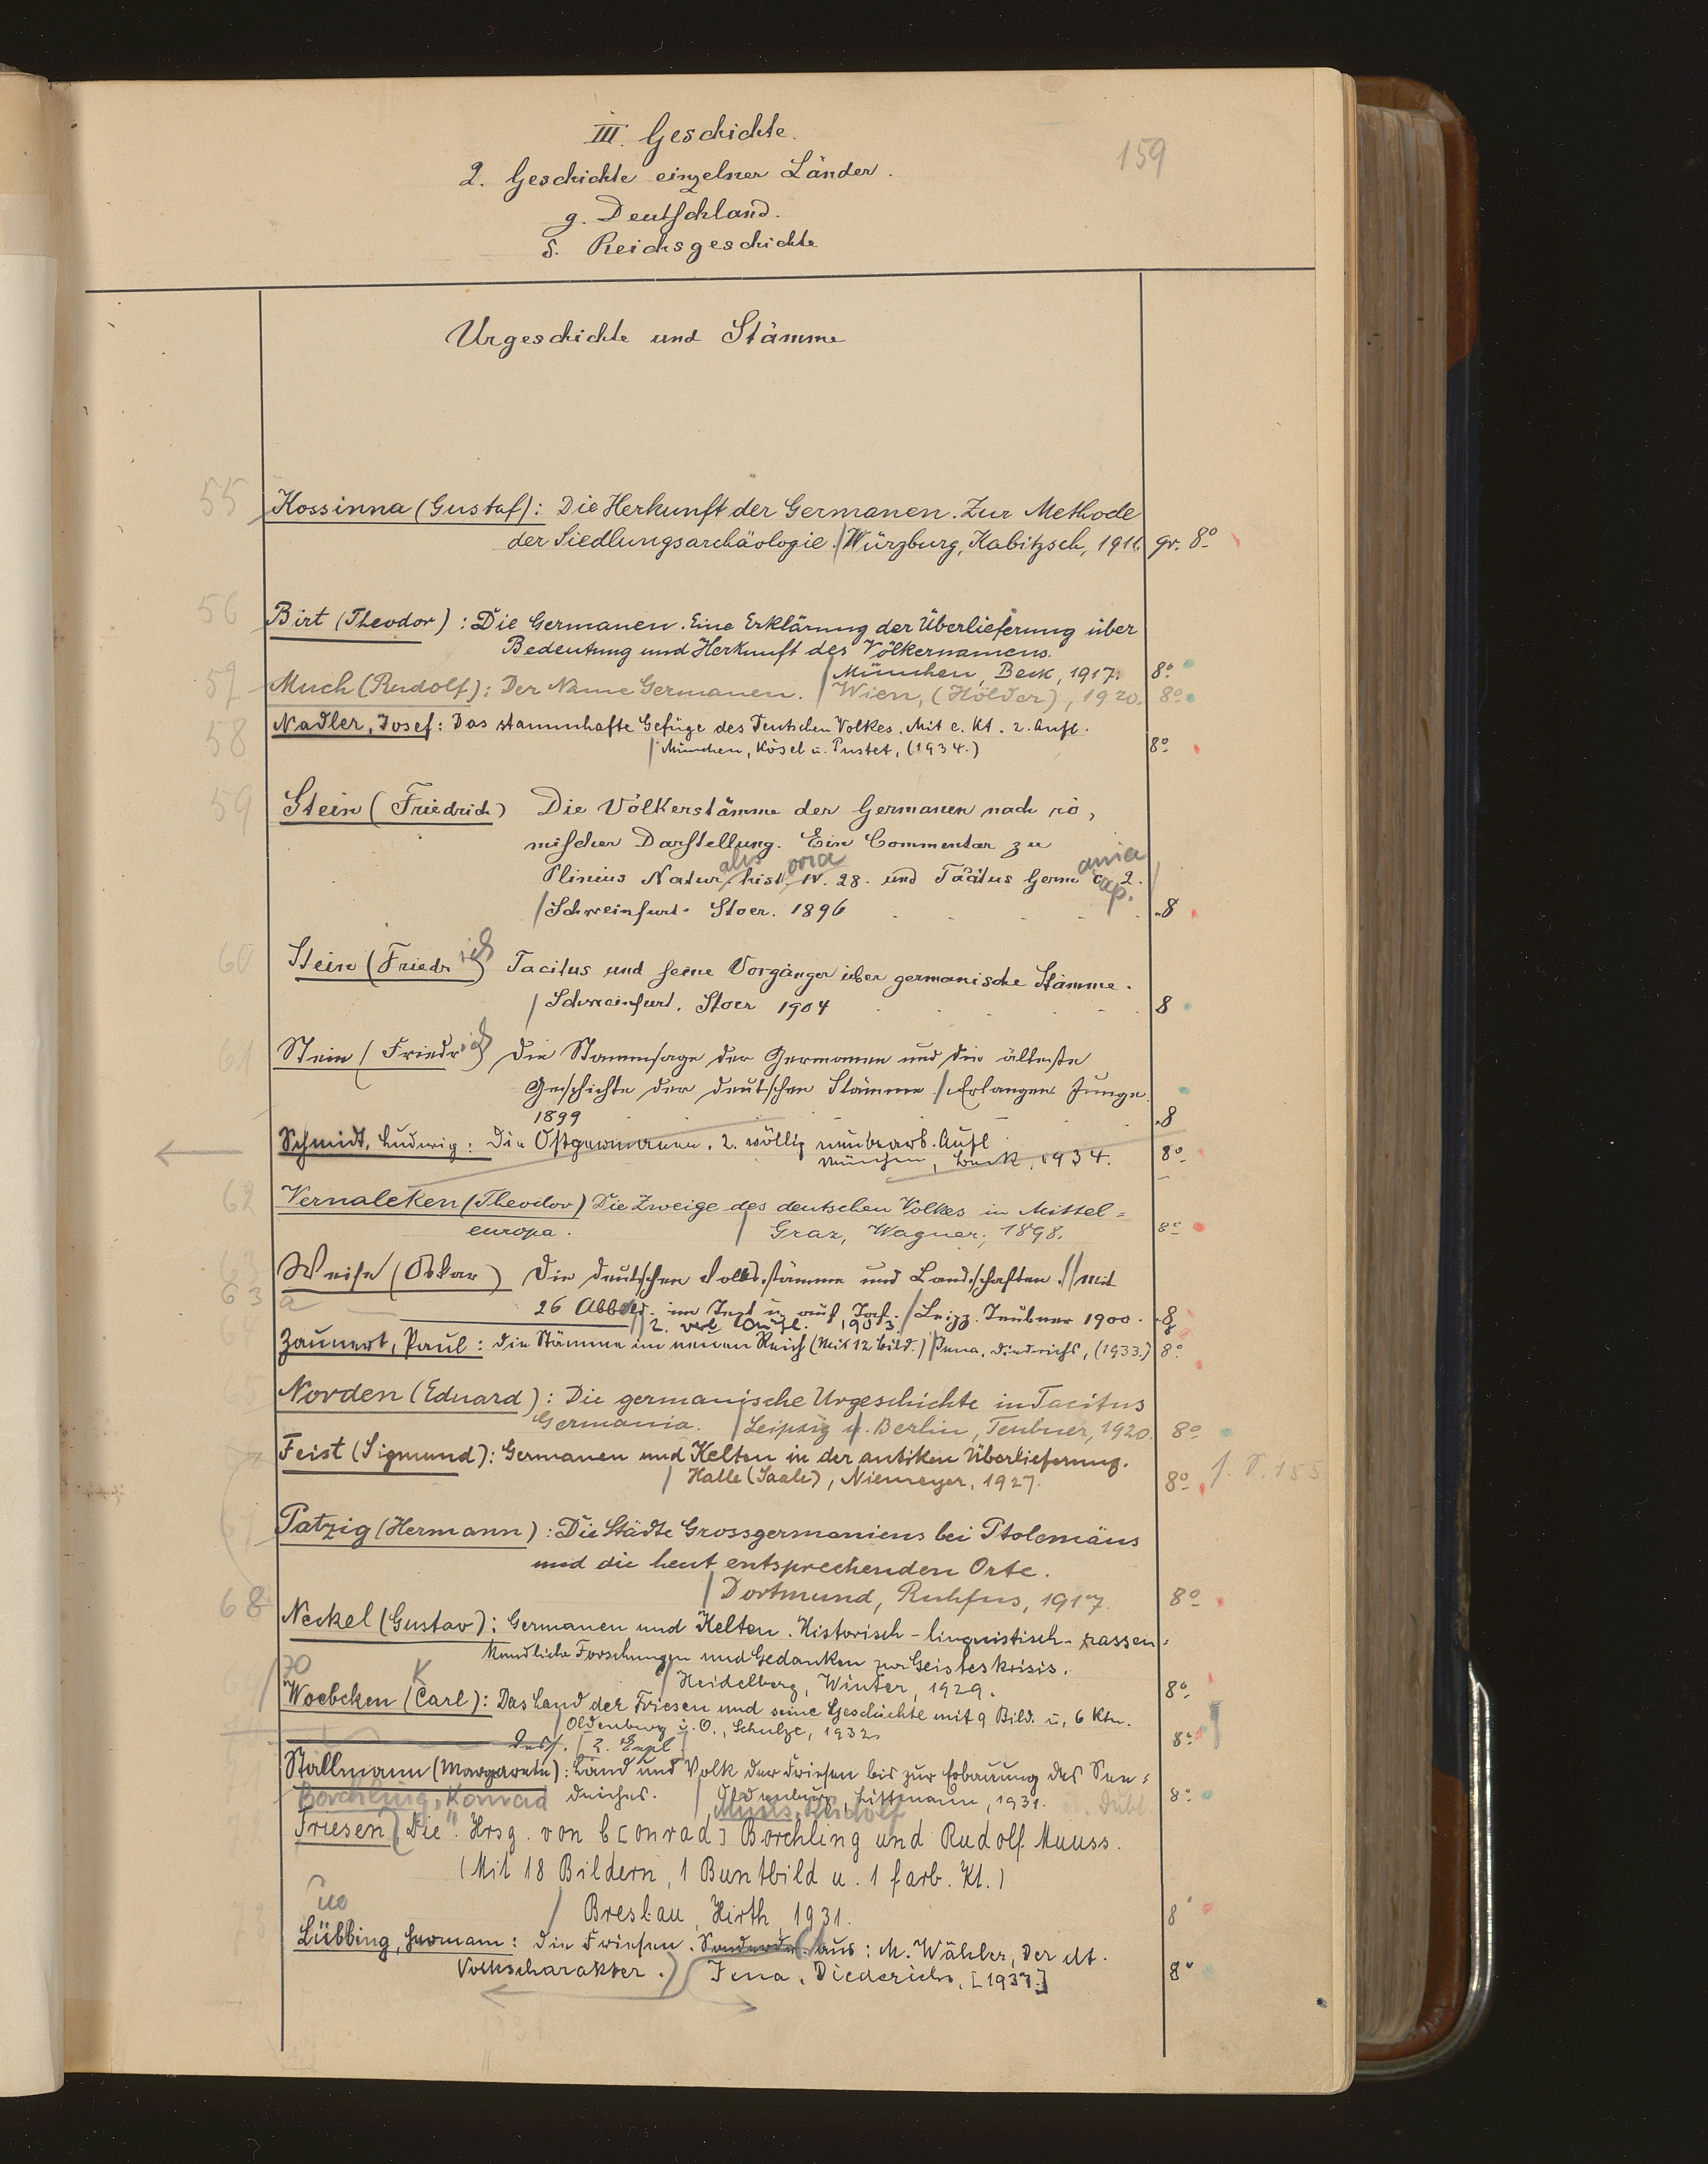 III. Geschichte.
159
2. Geschichte einzelner Länder.
g. Deutschland.
δ. Reichsgeschichte
Urgeschichte und Stämme
55 Kossinna (Gustaf): Die Herkunft der Germanen. Zur Methode
der Siedlungsarchäologie. / Würzburg, Kabitzsch, 1911. gr. 8º
56 Birt (Theodor): Die Germanen. Eine Erklärung der Überlieferung über
Bedeutung und Herkunft des Völkernamens.
/ München, Beck, 1917. 8º
57 Much (Rudolf): Der Name Germanen. / Wien, (Hölder), 1920. 8º
58 Nadler, Josef: Das stammhafte Gefüge des Deutschen Volkes. Mit e. Kt. 2. Aufl.
/ München, Kösel u. Pustet, (1934.) 8º
59 Stein (Friedrich) Die Völkerstämme der Germanen nach rö,
mischer Darstellung. Ein Commentar zu
Plinius Naturalis historia IV. 28. und Tacitus Germania cap. 2.
/ Schweinfurt. Stoer. 1896 8
60 Stein (Friedrich) Tacitus und seine Vorgänger über germanische Stämme.
/ Schweinfurt. Stoer 1904 8
61 Stein (Friedrich) Die Stammsage der Germanen und die älteste
Geschichte der deutschen Stämme. / Erlangen Junge.
1899 8
Schmidt, Ludwig: Die Ostgermanen. 2. völlig neubearb. Aufl
München, Beck, 1934. 8º
62 Vernaleken (Theodor) Die Zweige des deutschen Volkes in Mittel=
europa. / Graz, Wagner, 1898. 8º
63 Weise (Oskar) Die deutschen Volksstämme und Landschaften. // Mit
63 a 26 Abbild. im Text u. auf Taf. / Leipz. Teubner 1900. 8
// 2. verb. Aufl. 1903.
Zaunert, Paul: Die Stämme im neuen Reich (Mit 12 Bild.) / Jena, Diederichs, (1933.) 8º
65 Norden (Eduard): Die germanische Urgeschichte in Tacitus
Germania. / Leipzig u. Berlin, Teubner, 1920. 8º
Feist (Sigmund): Germanen und Kelten in der antiken Überlieferung.
/ Halle (Saale), Niemeyer, 1927. 8º
67 Patzig (Hermann): Die Städte Grossgermaniens bei Ptolemäus
und die heut entsprechenden Orte.
/ Dortmund, Ruhfus, 1917. 8º
68 Neckel (Gustav): Germanen und Kelten. Historisch-linguistisch-rassen=
kundliche Forschungen und Gedanken zur Geisteskrisis.
/ Heidelberg, Winter, 1929. 8º
69 / 70 K
Woebcken (Carl): Das Land der Friesen und seine Geschichte mit 9 Bild. u. 6 Ktn.
/ Oldenburg i. O., Schulze, 1932. 8º
Dass. [2. Expl.]
71 Stallmann (Margarete): Land und Volk der Friesen bis zur Erbauung des See=
deiches. / Oldenburg, Littmann, 1931. 8º
Borchling, Konrad Muuss, Rudolf
72 Friesen, Die". Hrsg. von C[onrad] Borchling und Rudolf Muuss.
(Mit 18 Bildern, 1 Buntbild u. 1 farb. Kt.)
/ Breslau, Hirth, 1931. 8º
73 Lübbing, Hermann: Die Friesen. Sonderdr. aus: M. Wähler, Der dt.
Volkscharakter.) Jena, Diederichs, [1937.] 8º